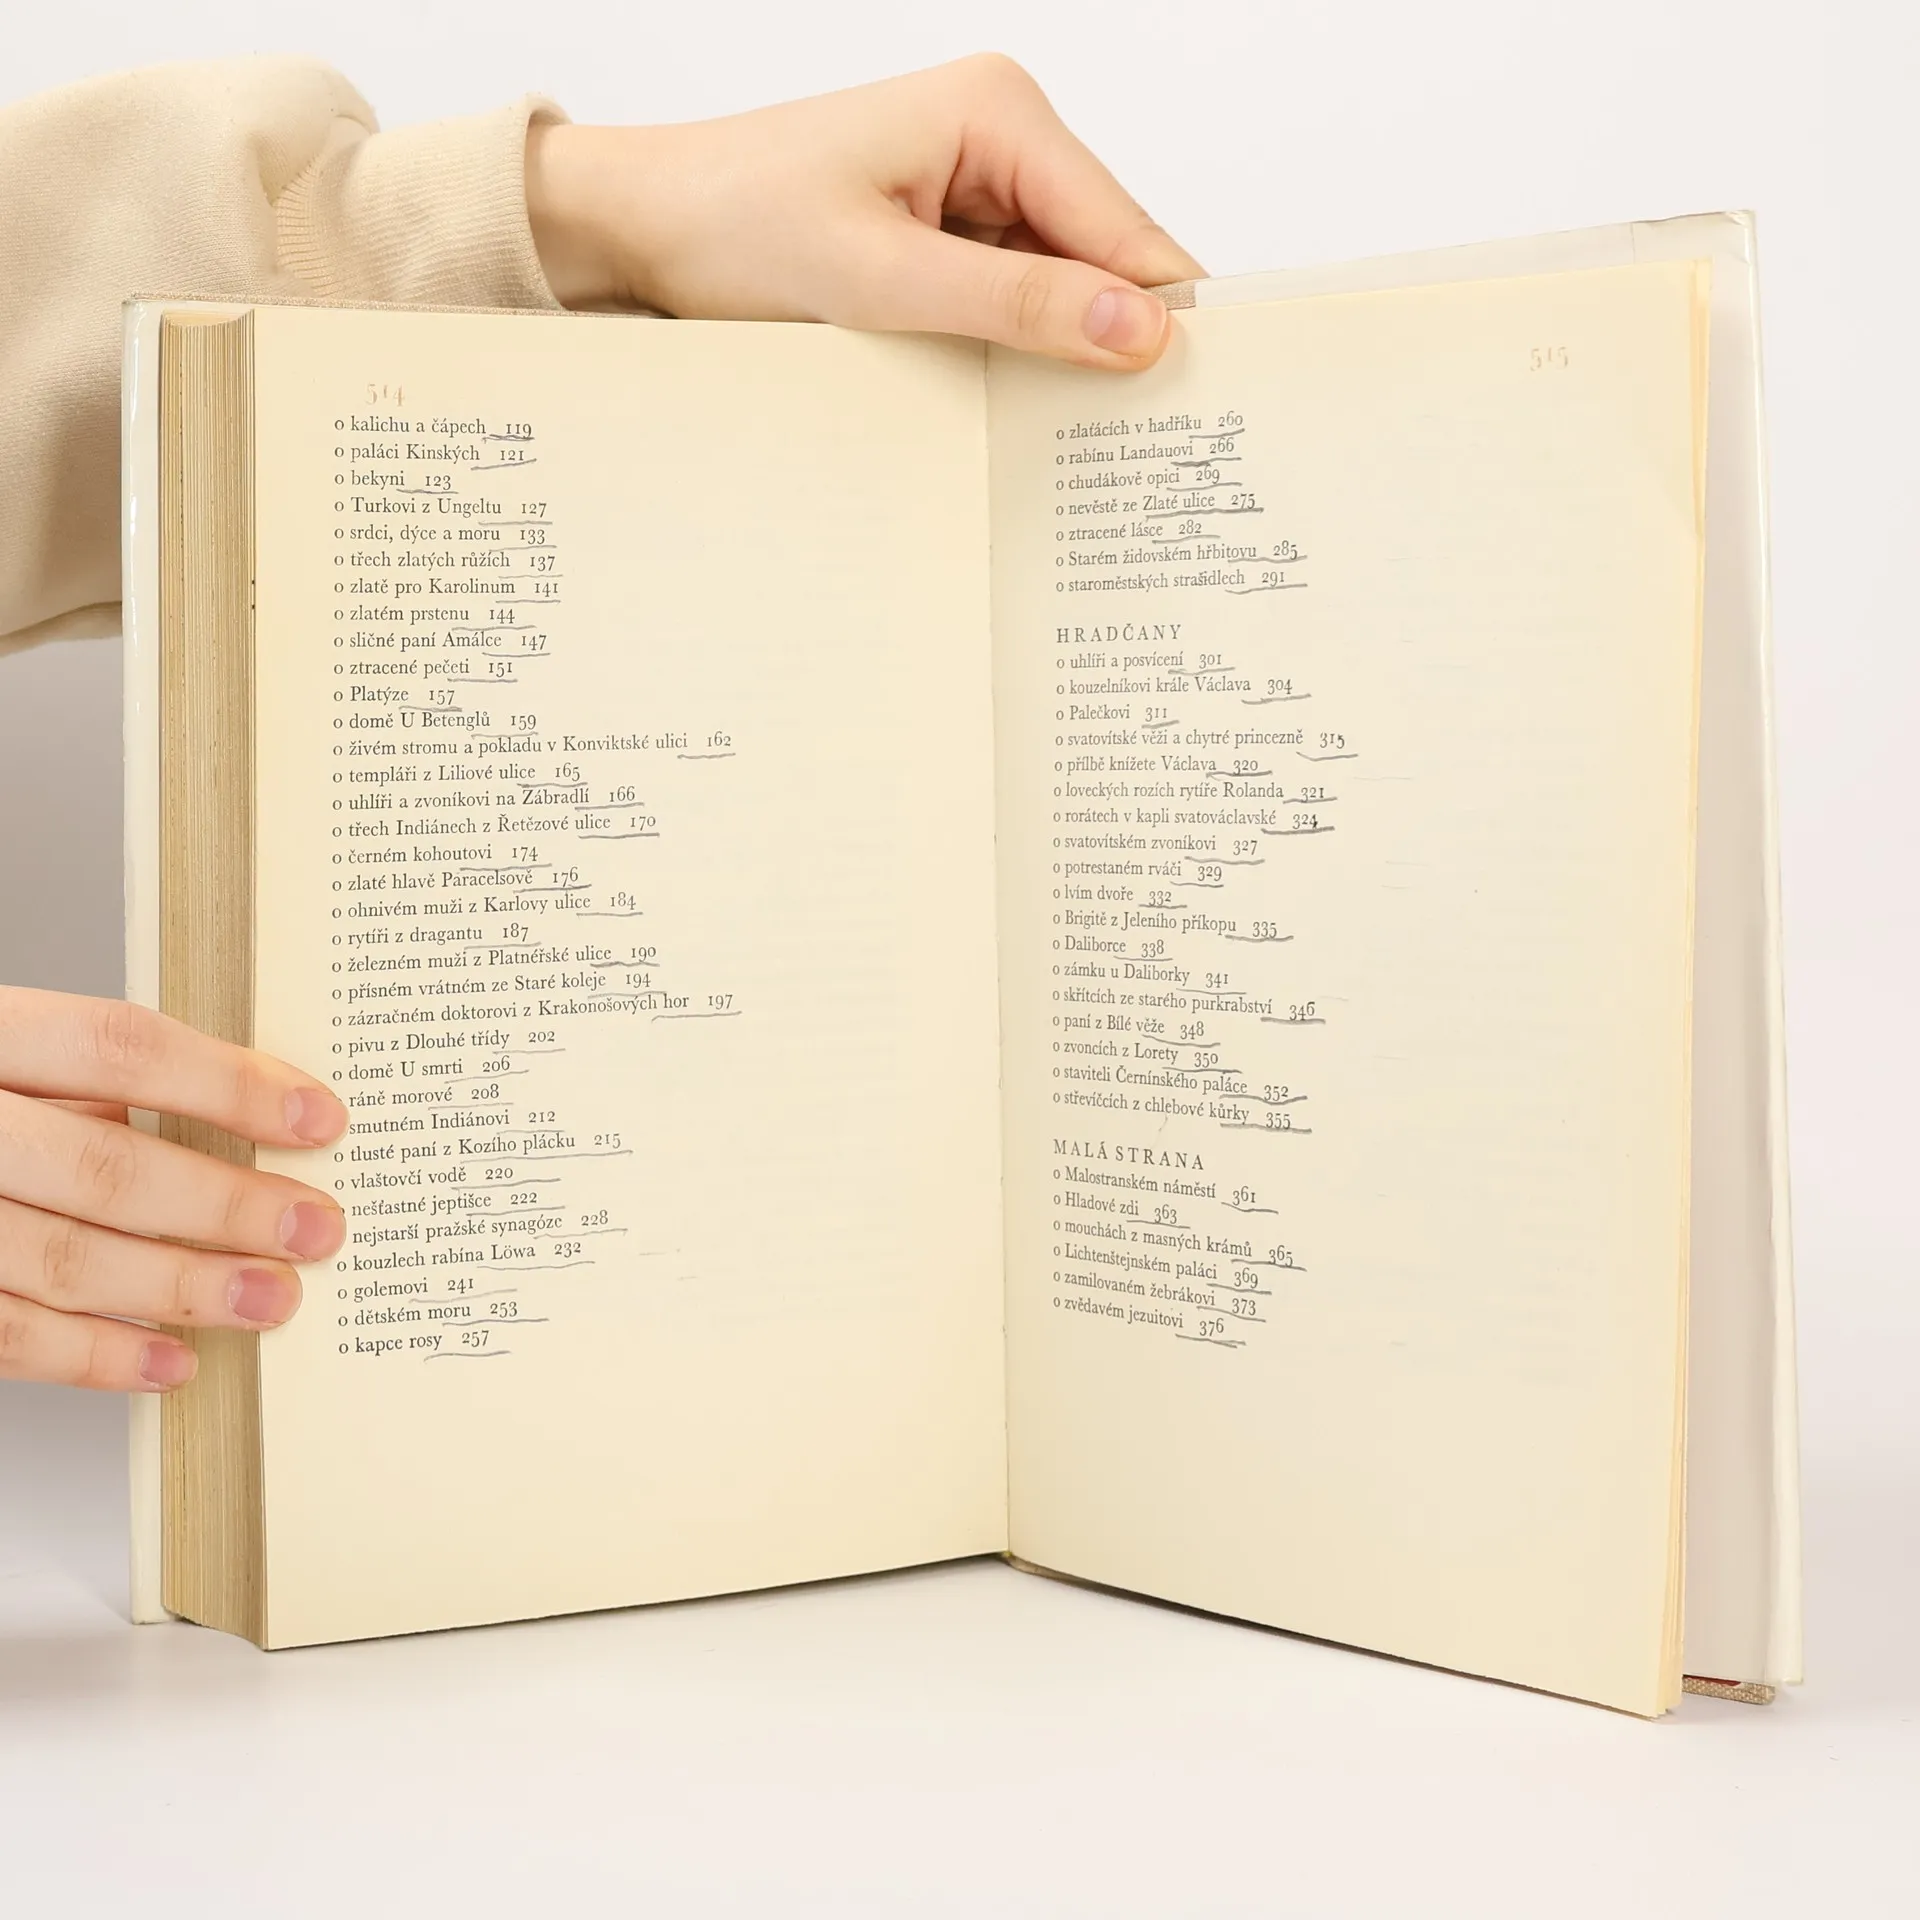 514
o kalichu a čápech 119
o paláci Kinských 121
o bekyni 123
o Turkovi z Ungeltu 127
o srdci, dýce a moru 133
o třech zlatých růžích 137
o zlatě pro Karolinum 141
o zlatém prstenu 144
o sličné paní Amálce 147
o ztracené pečeti 151
o Platýze 157
o domě U Betenglů 159
o živém stromu a pokladu v Konviktské ulici 162
o templáři z Liliové ulice 165
o uhlíři a zvoníkovi na Zábradlí 166
o třech Indiánech z Řetězové ulice 170
o černém kohoutovi 174
o zlaté hlavě Paracelsově 176
o ohnivém muži z Karlovy ulice 184
o rytíři z dragantu 187
o železném muži z Platnéřské ulice 190
o přísném vrátném ze Staré koleje 194
o zázračném doktorovi z Krakonošových hor 197
o pivu z Dlouhé třídy 202
o domě U smrti 206
ráně morové 208
smutném Indiánovi 212
o tlusté paní z Kozího plácku 215
o vlaštovčí vodě 220
nešťastné jeptišce 222
nejstarší pražské synagóze 228
o kouzlech rabína Löwa 232
o golemovi 241
o dětském moru 253
o kapce rosy 257
515
o zlaťácích v hadříku 260
o rabínu Landauovi 266
o chudákově opici 269
o nevěstě ze Zlaté ulice 275
o ztracené lásce 282
o Starém židovském hřbitovu 285
o staroměstských strašidlech 291
HRADČANY
o uhlíři a posvícení 301
o kouzelníkovi krále Václava 304
o Palečkovi 311
o svatovítské věži a chytré princezně 315
o přílbě knížete Václava 320
o loveckých rozích rytíře Rolanda 321
o rorátech v kapli svatováclavské 324
o svatovítském zvoníkovi 327
o potrestaném rváči 329
o lvím dvoře 332
o Brigitě z Jeleního příkopu 335
o Daliborce 338
o zámku u Daliborky 341
o skřítcích ze starého purkrabství 346
o paní z Bílé věže 348
o zvoncích z Lorety 350
o staviteli Černínského paláce 352
o střevíčcích z chlebové kůrky 355
MALÁ STRANA
o Malostranském náměstí 361
o Hladové zdi 363
o mouchách z masných krámů 365
o Lichtenštejnském paláci 369
o zamilovaném žebrákovi 373
o zvědavém jezuitovi 376